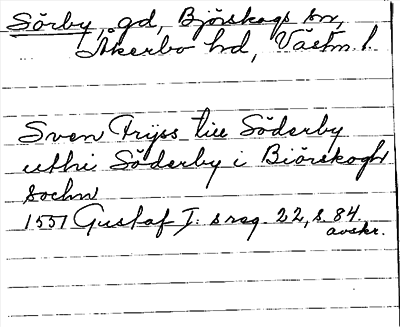 Sörby, gd, Björskogs sn,
Åkerbo hd, Västm. l.
Sven Frijss till Söderby
uthi Söderby i Biörskogh
Sochn
1551 Gustaf I: s reg. 22, s. 84.
avskr.